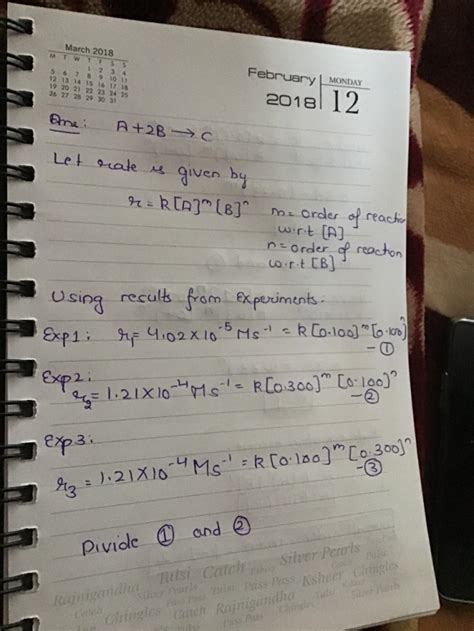 March 2018
M T W T F S S
1 2 3 4
5 6 7 8 9 10 11
12 13 14 15 16 17 18
19 20 21 22 23 24 25
26 27 28 29 30 31
February
2018
MONDAY
12
Ans: A+2B → C
Let rate is given by
r = k[A]^m [B]^n
m = order of reaction
w.r.t [A]
n = order of reaction
w.r.t [B]
Using results from Experiments.
Exp1: r₁ = 4.02×10⁻⁵ Ms⁻¹ = k[0.100]^m [0.100]^n
—①
Exp2:
r₂ = 1.21×10⁻⁴ Ms⁻¹ = k[0.300]^m [0.100]^n
—②
Exp3:
r₃ = 1.21×10⁻⁴ Ms⁻¹ = k[0.100]^m [0.300]^n
—③
Divide ① and ②
Rajnigandha Tulsi Catch Silver Pearls
Chingles Catch Rajnigandha Ksheer Chingles
Pass Pass